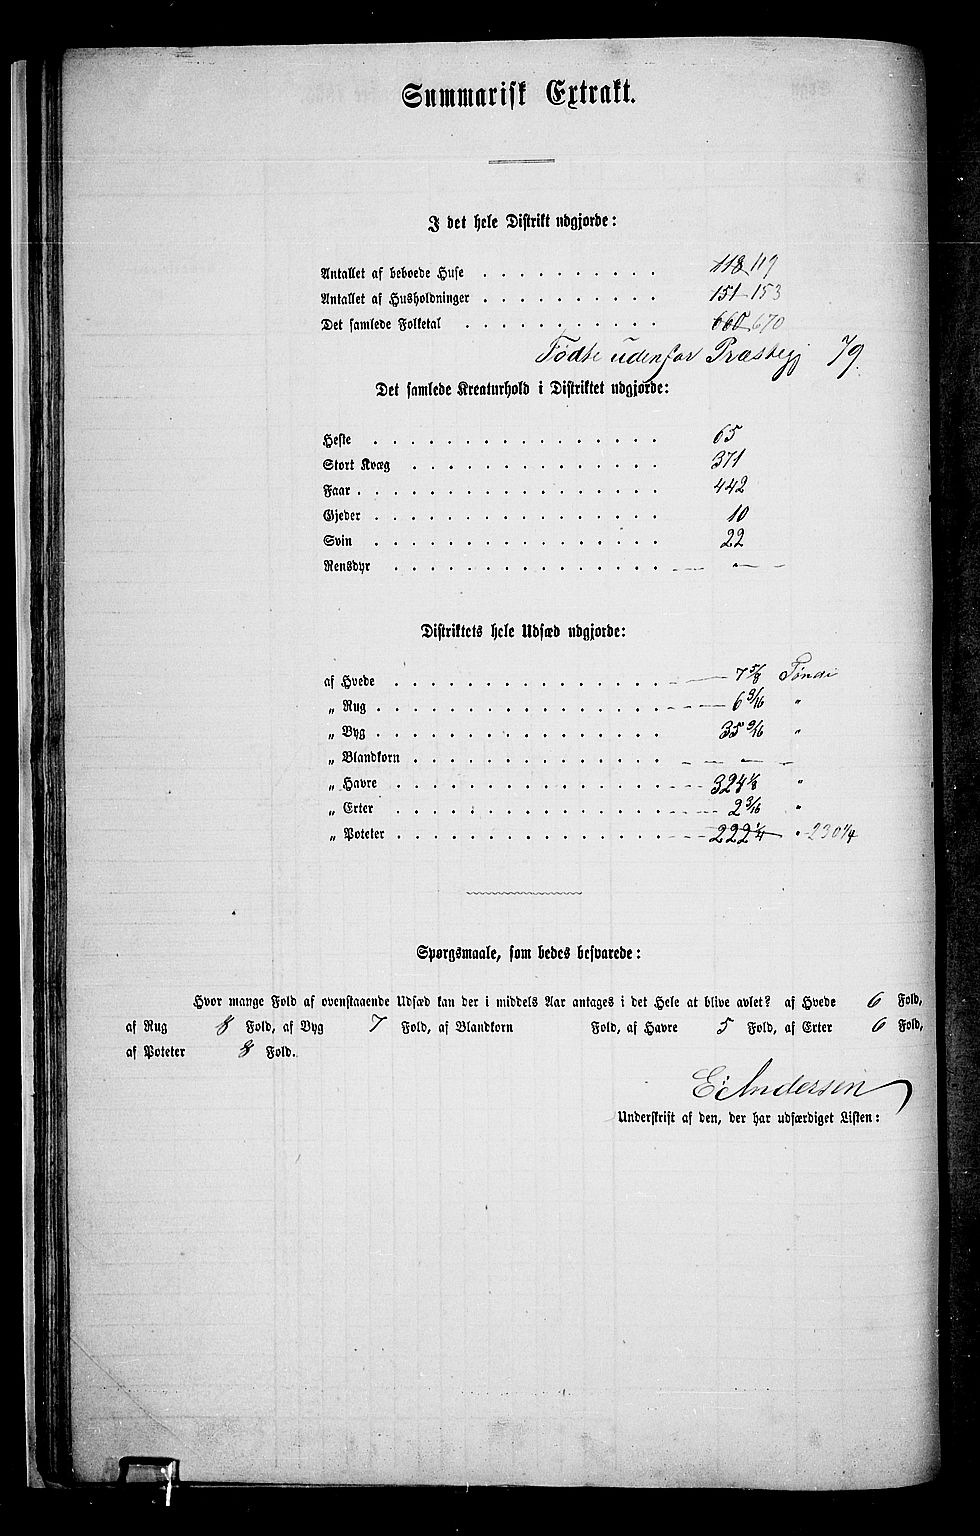 Summarisk Extrakt.
I det hele Distrikt udgjorde:
Antallet af beboede Huse . . . . . . . . . . 118 119
Antallet af Husholdninger . . . . . . . . . . 151 153
Det samlede Folketal . . . . . . . . . . . 660 670
Fødte udenfor Præstegj 79.
Det samlede Kreaturhold i Distriktet udgjorde:
Heste . . . . . . . . . . . . . . . . 65
Stort Kvæg . . . . . . . . . . . . . . 371
Faar . . . . . . . . . . . . . . . . . 442
Gjeder . . . . . . . . . . . . . . . . 10
Svin . . . . . . . . . . . . . . . . 22
Rensdyr . . . . . . . . . . . . . . . — " —
Distriktets hele Udsæd udgjorde:
af Hvede . . . . . . . . . . . . . . . 7 5/8 Tønde
„ Rug . . . . . . . . . . . . . . . . 6 3/16 "
„ Byg . . . . . . . . . . . . . . . . 35 9/16 "
„ Blandkorn . . . . . . . . . . . . . — — — —
„ Havre . . . . . . . . . . . . . . . 324 1/8 "
„ Erter . . . . . . . . . . . . . . . 2 3/16 "
„ Poteter . . . . . . . . . . . . . . 222 1/4 " 230 1/4
Spørgsmaale, som bedes besvarede:
Hvor mange Fold af ovenstaaende Udsæd kan der i middels Aar antages i det Hele at blive avlet? af Hvede 6 Fold,
af Rug 8 Fold, af Byg 7 Fold, af Blandkorn Fold, af Havre 5 Fold, af Erter 6 Fold,
af Poteter 8 Fold.
E: Andersen
Underskrift af den, der har udfærdiget Listen: